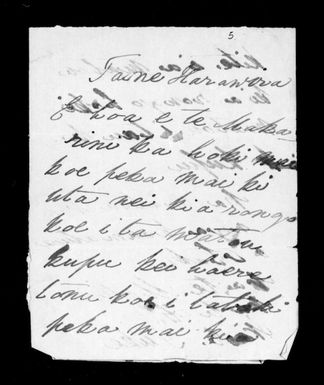 5
Taine Harawira
E hoa e te Maka
rini ka hoki mai
koe peka mai ki
uta nei kia rongo
koe i ta matou
kupu kei haere
tonu koe i tahaki
peka mai kia